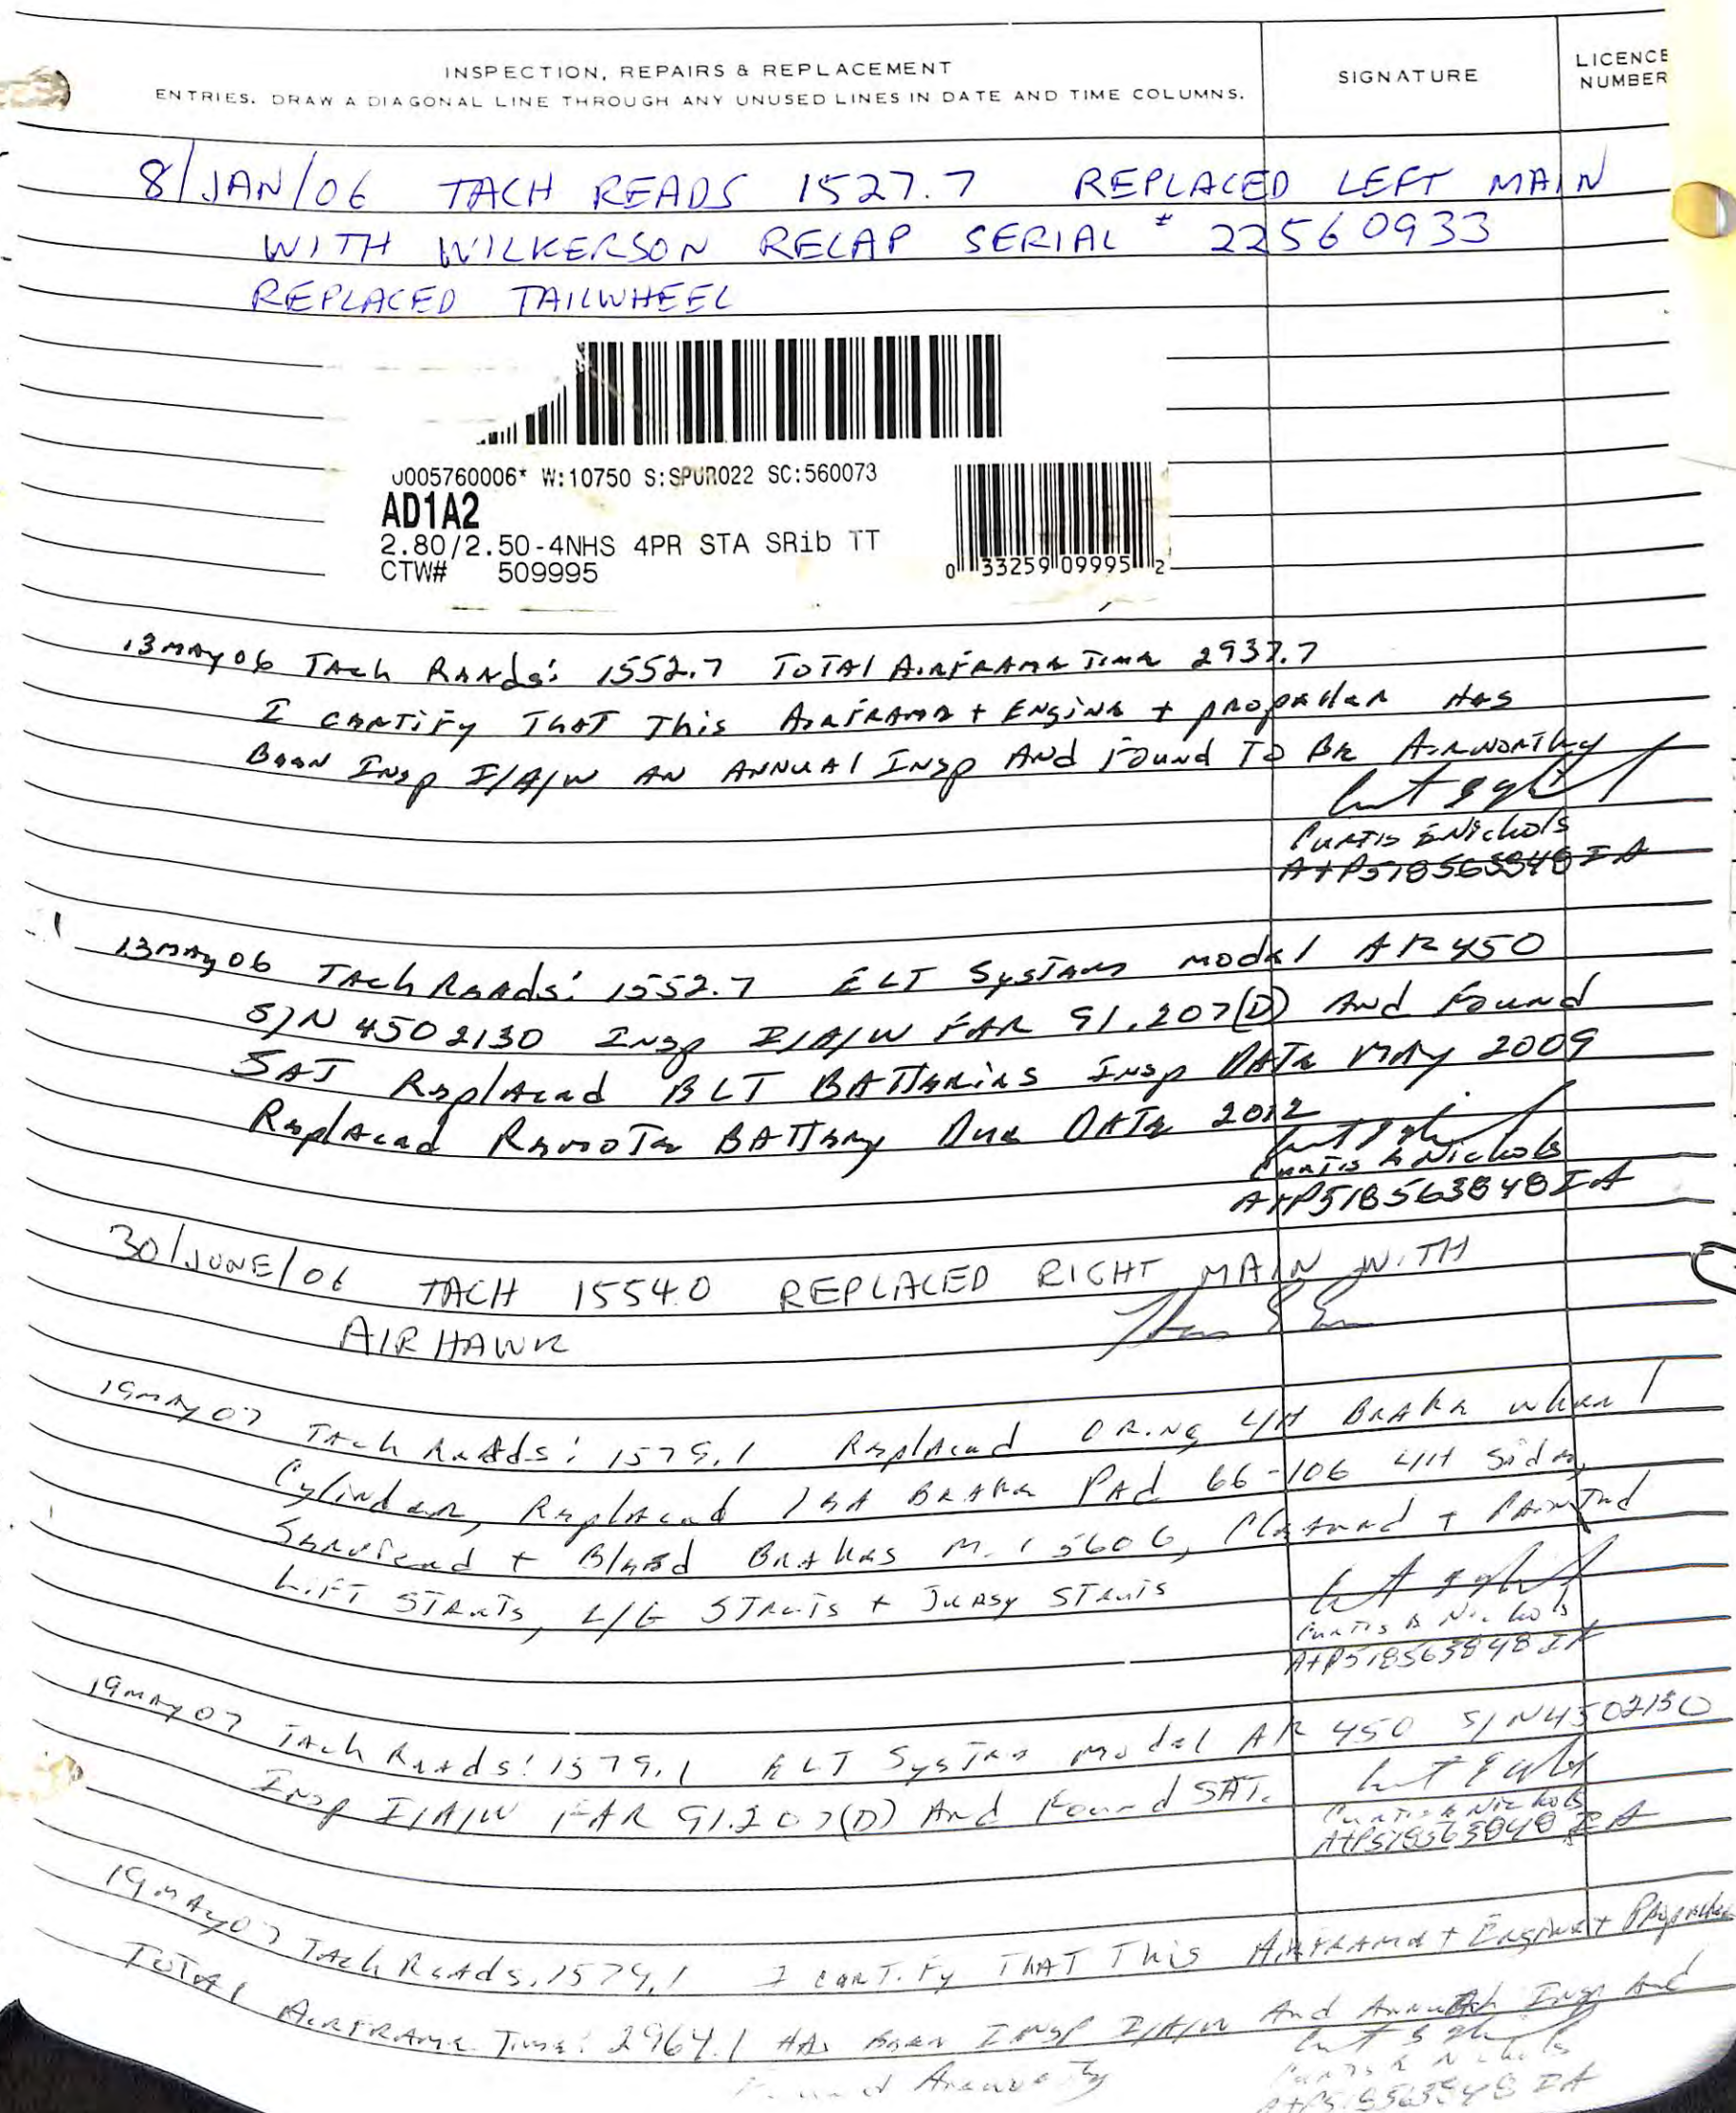 INSPECTION, REPAIRS & REPLACEMENT
ENTRIES. DRAW A DIAGONAL LINE THROUGH ANY UNUSED LINES IN DATE AND TIME COLUMNS.
SIGNATURE
LICENCE
NUMBER
8/JAN/06 TACH READS 1527.7 REPLACED LEFT MAIN
WITH WILKERSON RECAP SERIAL # 22560933
REPLACED TAILWHEEL
0005760006* W:10750 S:SPUR022 SC:560073
AD1A2
2.80/2.50-4NHS 4PR STA SRib TT
CTW# 509995
0 33259 09995 2
13 MAY 06 TAch Reads: 1552.7 TOTAl Airframe Time 2937.7
I certify That This Airframe + Engine + propeller Has
Been Insp I/A/W AN ANNUAl Insp And Found To Be Airworthy
Curtis E Nichols
A+P518563848 IA
13 May 06 TAch Reads: 1552.7 ELT Systems model AR450
S/N 4502130 Insp I/A/W FAR 91.207(D) And Found
SAT Replaced ELT BATTeries Insp DATe MAy 2009
Replaced Remote BATTery Due DATe 2012
Curtis E Nichols
A+P518563848 IA
30/JUNE/06 TACH 1554.0 REPLACED RIGHT MAIN WITH
AIRHAWK
19 MAy 07 TAch Reads: 1579.1 Replaced ORing L/H Brake wheel
Cylinder, Replaced 1 EA Brake Pad 66-106 L/H Side,
Serviced + Bleed Brakes M-15606, Cleaned + Painted
LiFT STruts, L/G STruts + Jury STruts
Curtis E Nichols
A+P518563848 IA
19 MAy 07 TAch Reads: 1579.1 ELT System Model AR 450 S/N 4502130
Insp I/A/W FAR 91.207(D) And Found SAT.
Curtis E Nichols
A+P518563848 IA
19 MAy 07 TAch Reads: 1579.1 I certify THAT This Airframe + Engine + Propeller
TOTAl Airframe Time: 2964.1 HAs Been INSP I/A/W And Annual Insp And
Found Airworthy
Curtis E Nichols
A+P518563848 IA